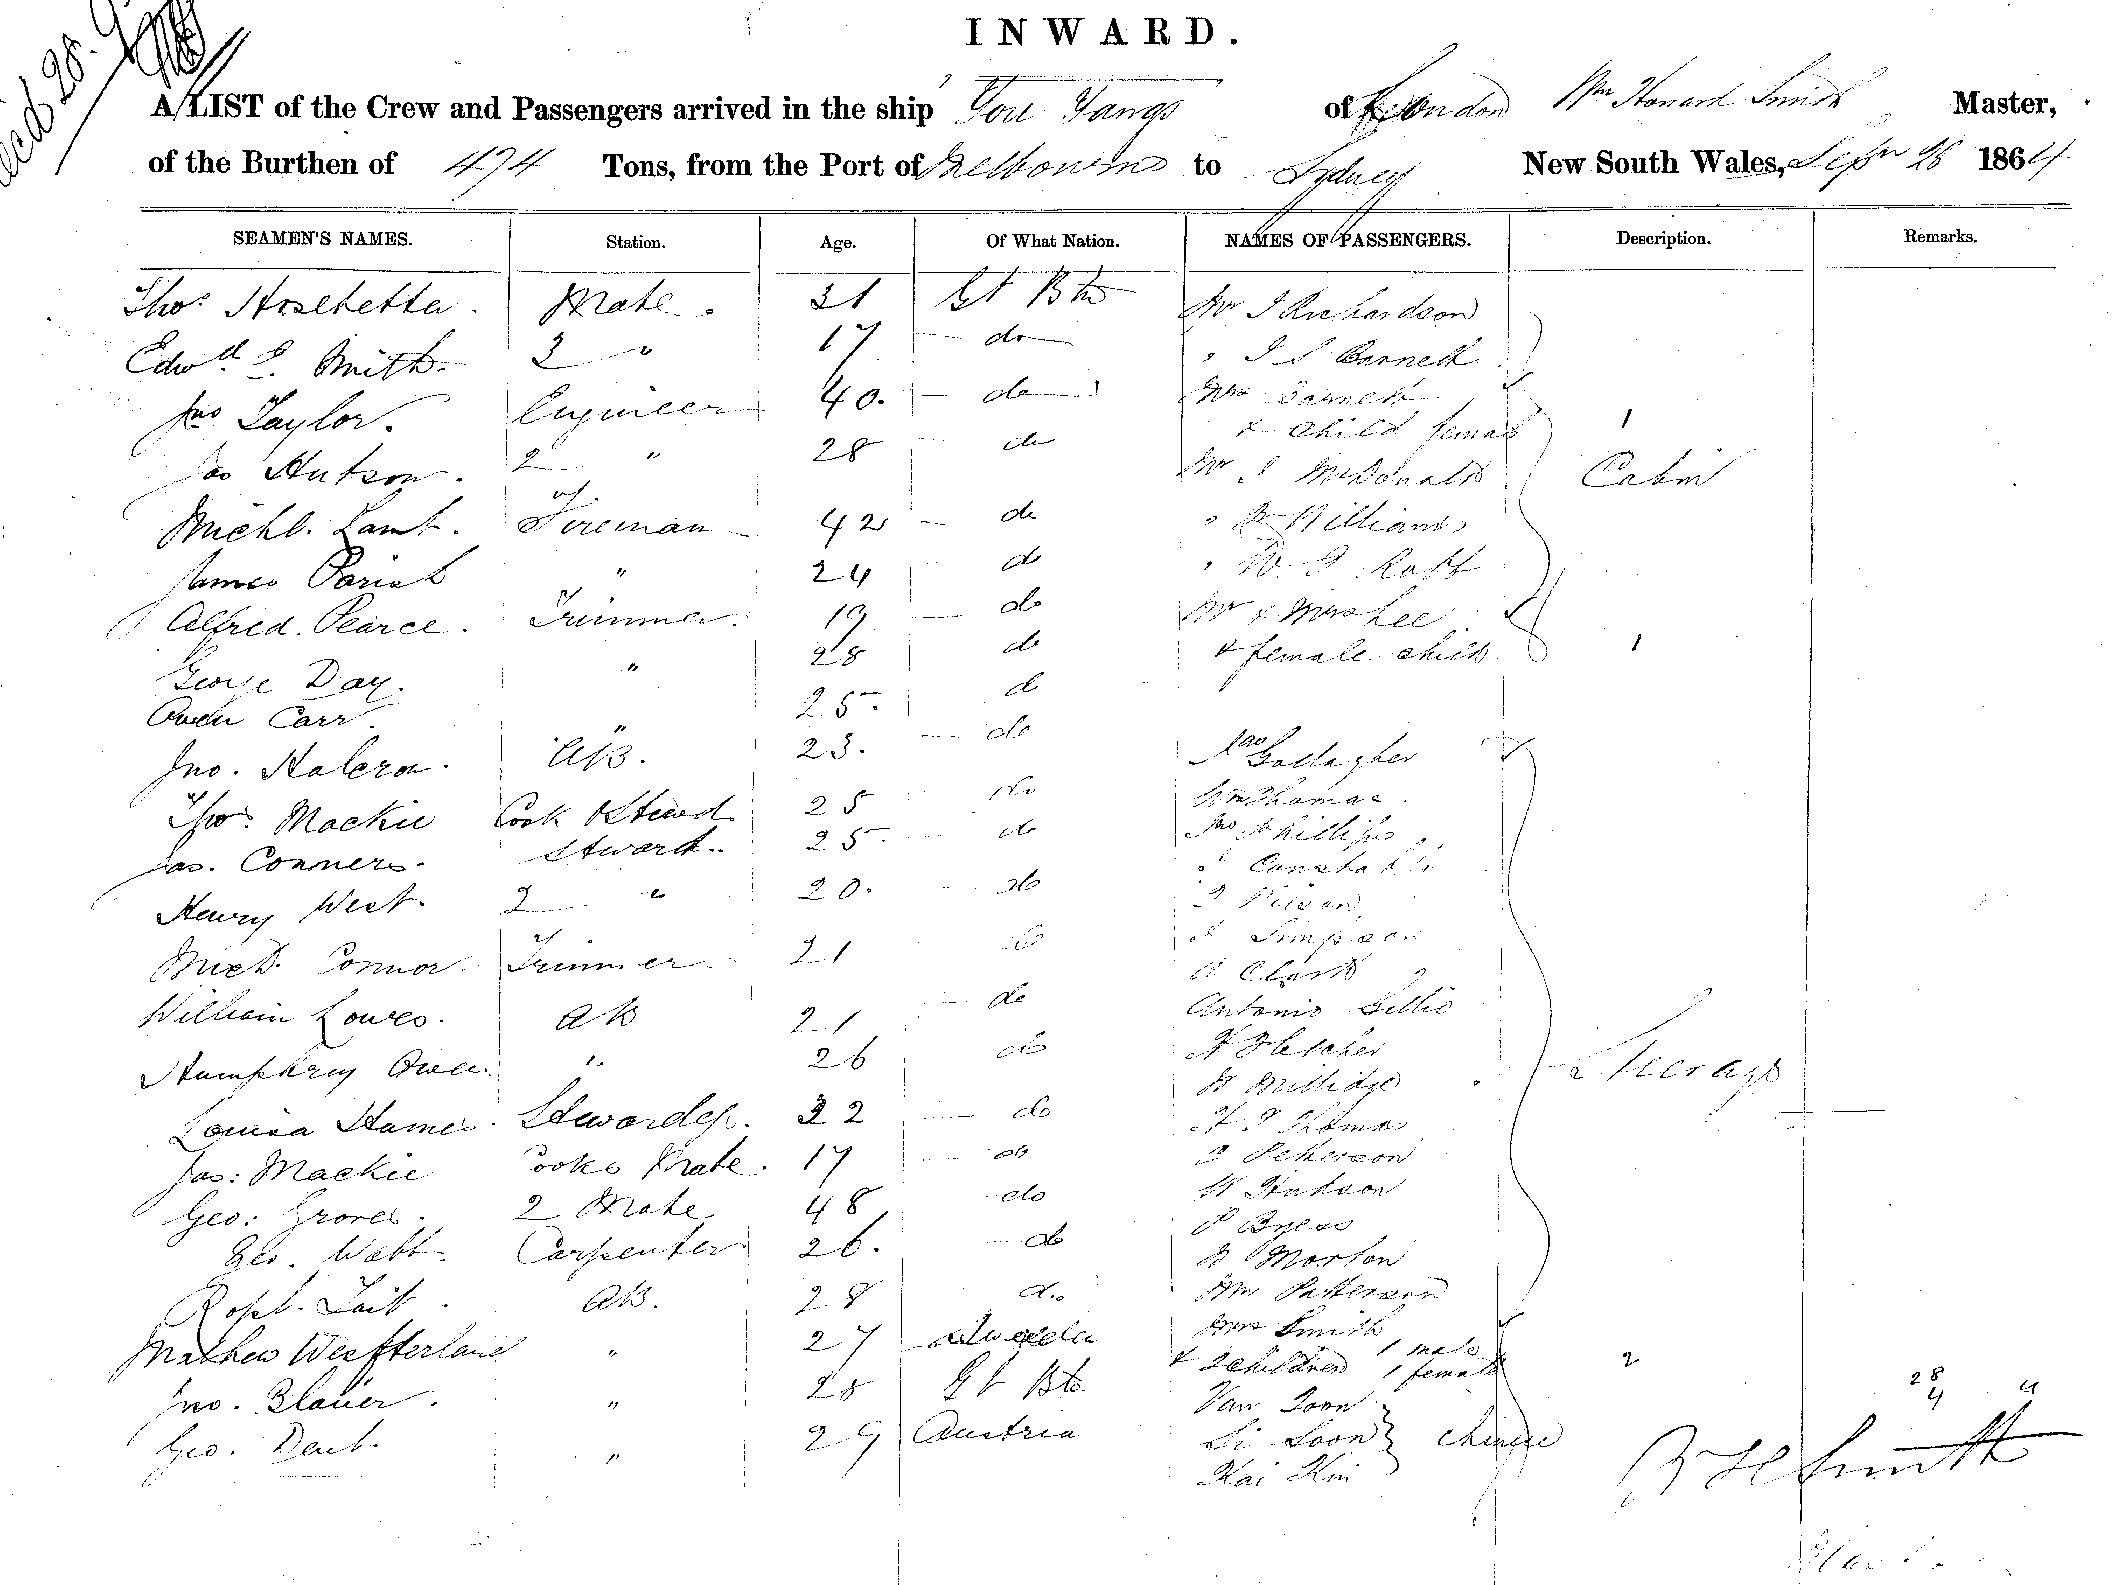 INWARD.
A LIST of the Crew and Passengers arrived in the ship You Yangs of London Wm Howard Smith Master,
of the Burthen of 474 Tons, from the Port of Melbourne to Sydney New South Wales, Sepr 26 1864
SEAMEN'S NAMES. Station. Age. Of What Nation. NAMES OF PASSENGERS. Description. Remarks.
Thos Mate. 31 Gt Btn Mr J Richardson
Edwd S. Smith. 2 " 17 do " J S Barnett
Jno Taylor. Engineer 40. do Mrs Barnett
& child female 1
Jas Hutson. 2 " 28 do Mr J McDonald Cabin
Michl. Lamb. Fireman 42 do " Williams
James Parish " 24 do " W. J.
Alfred Pearce. Trimmer. 19 do Mr & Mrs Lee
George Day. " 28 do & female child 1
Owen Carr. " 25. do
Jno. Halcrow. AB. 23. do Jas Gallagher
Thos. Mackie Cook & Steward 25 do Wm Thomas
Jas. Conners. Steward. 25 do Jno Phillips
" Constable
Henry West. 2 " 20. do
Michl. Connor. Trimmer 21 do J Simpson
Clark
William Lowes. AB 21 do Antonio
Humphrey Owen " 26 do H Fletcher
Millidge Steerage
Louisa Hames. Stewardess. 32 do H J Thomas
Jas: Mackie Cooks Mate. 17 do J Peterson
Geo: Groves. 2 Mate 48 do W Hudson
P
Geo. Webb. Carpenter 26. do Morton
Robt. Tait. AB. 28 do Wm Patterson
Mathew Westterland " 27 Sweden Mrs Smith
& 2 children 1 male 1 female 2
Jno. " 28 Gt Btn Van Toon 28 4
Geo. Dent. " 29 Austria Li Loon Chinese
Kai Kin
W H Smith